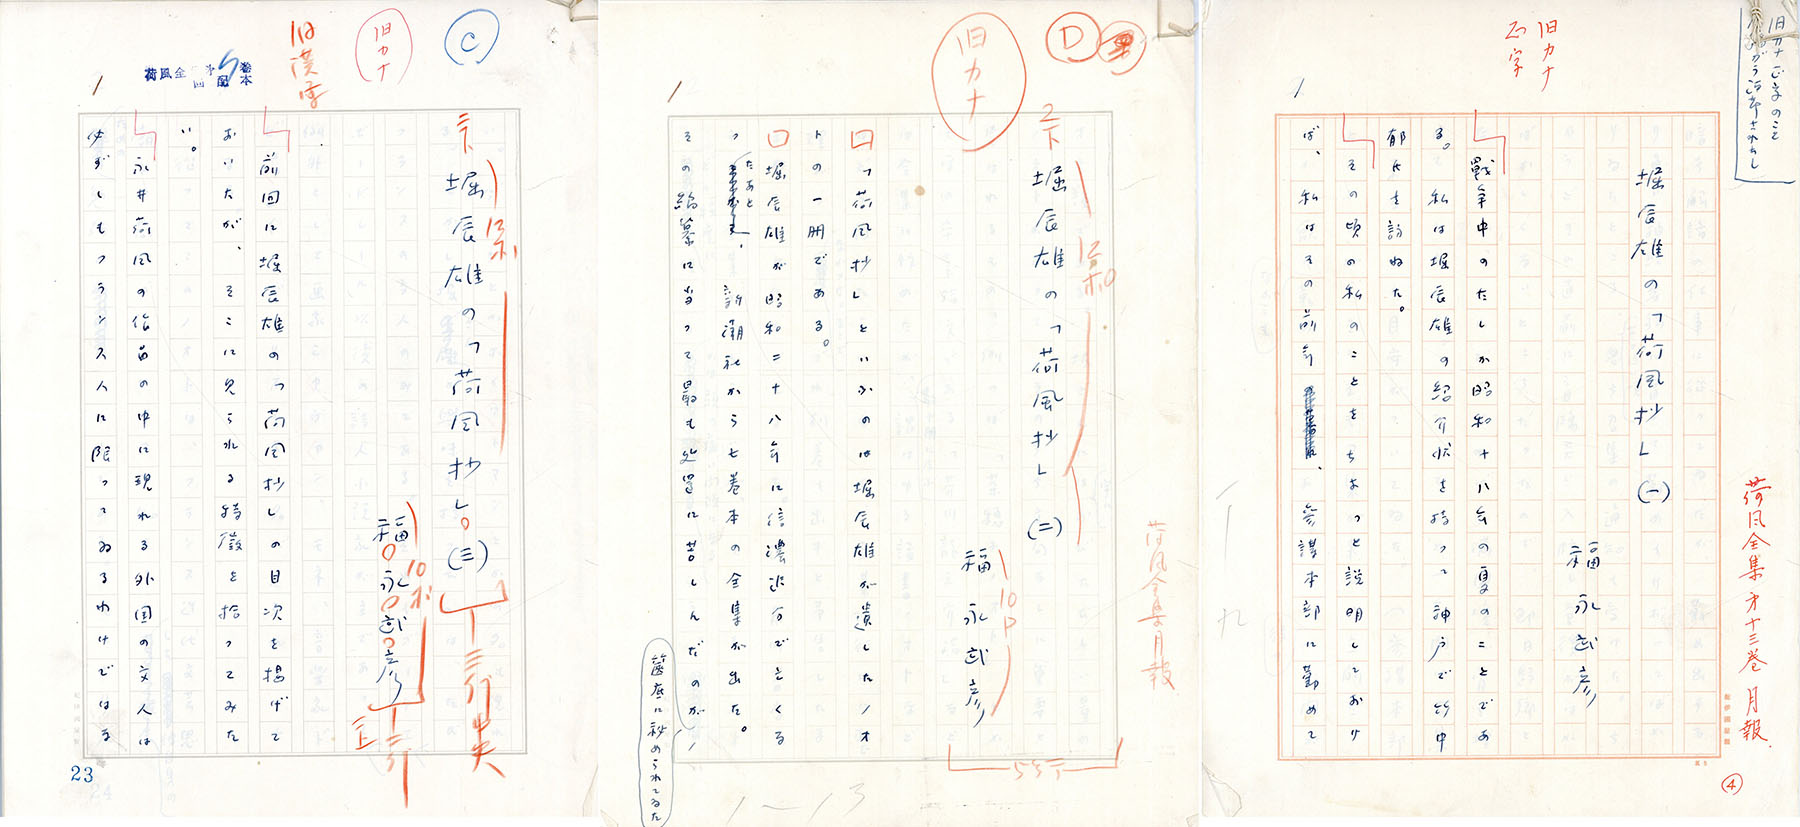 旧カナ正字のこと
旧カナ
正字
荷風全集第十三巻 月報
堀辰雄の「荷風抄」(一)
福永武彦
戦争中のたしか昭和十八年の夏のことであ
る。私は堀辰雄の紹介状を持つて神戸で竹中
郁氏を訪ねた。
その頃の私のことをちよつと説明しておけ
ば、私はその前年、参謀本部に勤めて
1
④
D
旧カナ
2下
12ポ
荷風全集月報
堀辰雄の「荷風抄」(二)
福永武彦
10P
5行
「荷風抄」といふのは堀辰雄が遺したノオ
トの一冊である。
堀辰雄が昭和二十八年に信濃追分でなくな
つたあと、新潮社から七巻本の全集が出た。
その編纂に当つて最も処置に苦しんだのが、
筐底に秘められてゐた
1
1〜13
C
旧カナ
旧漢字
荷風全集
巻本
配回
三下
12ポ
堀辰雄の「荷風抄」(三)
三行中央
福永武彦
10ポ
二行
前回に堀辰雄の「荷風抄」の目次を掲げて
おいたが、そこに見られる特徴を拾つてみた
い。
永井荷風の作品の中に現れる外国の文人は
必ずしもフランス人に限つてゐるわけではな
1
23